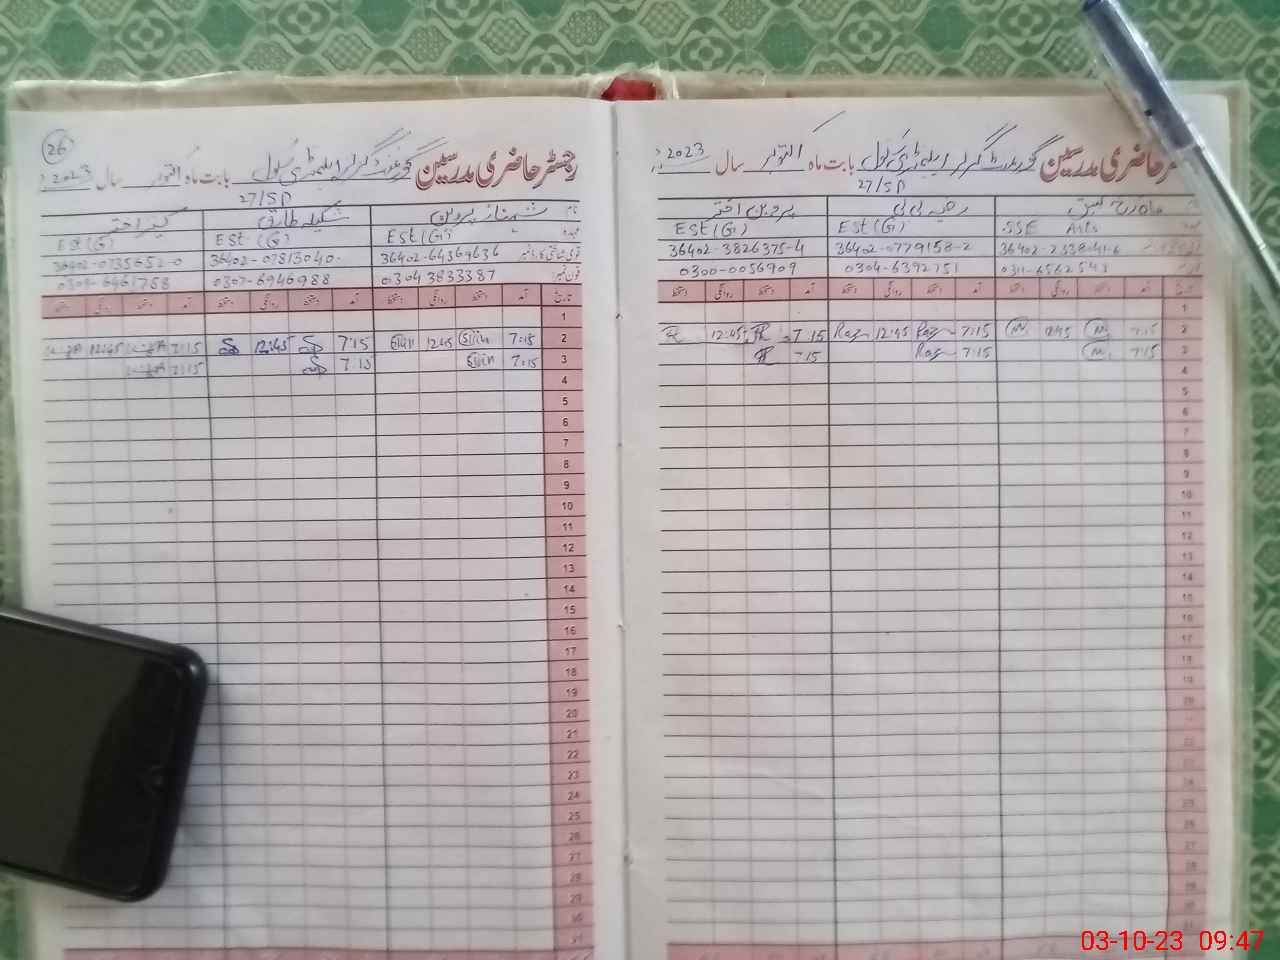 26
رجسٹر حاضری مدرسین گورنمنٹ گرلز ایلیمنٹری سکول بابت ماہ اکتوبر سال 2023
27/SP
نام شہناز پروین شکیلہ طارق کنیز اختر
عہدہ EST(G) EST (G) EST(G)
قومی شناختی کارڈ نمبر 36402-07813040- 36402-0735652-0
فون نمبر 0304 3833387 0307-6946988
تاریخ آمد دستخط روانگی دستخط آمد دستخط روانگی دستخط آمد دستخط روانگی دستخط
1
2 7:15 12:45 7:15 12:45 7:15 12:45
3 7:15 7:15 7:15
4
5
6
7
8
9
10
11
12
13
14
15
16
17
18
19
20
21
22
23
24
25
26
27
28
29
30
31
رجسٹر حاضری مدرسین گورنمنٹ گرلز ایلیمنٹری سکول بابت ماہ اکتوبر سال 2023
27/SP
رضیہ بی بی پروین اختر
SSE Arts EST(G) EST(G)
36402-0779158-2 36402-3826375-4
0304-6392751 0300-0056909
تاریخ آمد دستخط روانگی دستخط آمد دستخط روانگی دستخط آمد دستخط روانگی دستخط
1
2 7:15 12:45 7:15 12:45 7:15 12:45
3 7:15 7:15 7:15
4
5
6
7
8
9
10
11
12
13
14
15
16
17
18
19
20
22
23
24
25
26
27
28
29
30
31
03-10-23 09:47